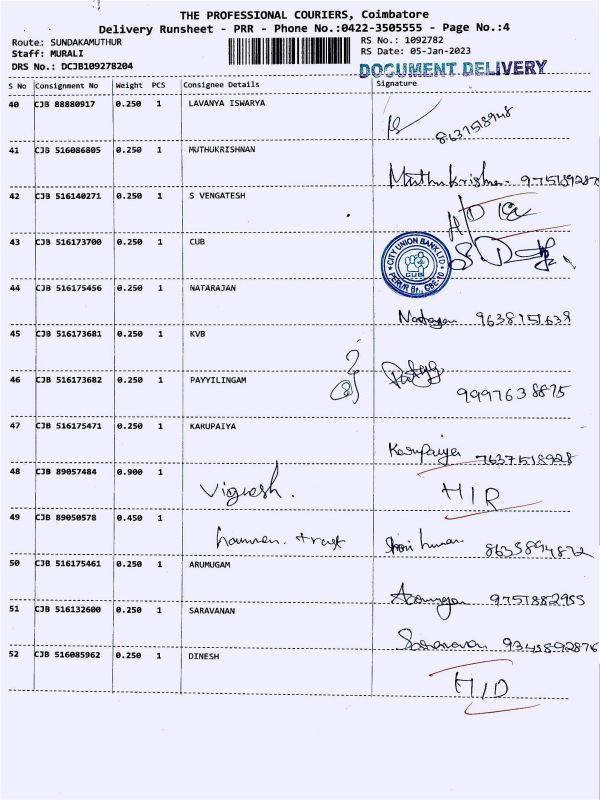 THE PROFESSIONAL COURIERS, Coimbatore
Delivery Runsheet - PRR - Phone No.:0422-3505555 - Page No.:4
Route: SUNDAKAMUTHUR RS No.: 1092782
Staff: MURALI RS Date: 05-Jan-2023
DRS No.: DCJB109278204 DOCUMENT DELIVERY
S No Consignment No Weight PCS Consignee Details Signature
40 CJB 88880917 0.250 1 LAVANYA ISWARYA
41 CJB 516086805 0.250 1 MUTHUKRISHNAN
Muthukrishnan
42 CJB 516140271 0.250 1 S VENGATESH
43 CJB 516173700 0.250 1 CUB
CITY UNION BANK LTD CUB PERUR Br., CBE-10
44 CJB 516175456 0.250 1 NATARAJAN
Natarajan
45 CJB 516173681 0.250 1 KVB
46 CJB 516173682 0.250 1 PAYYILINGAM
9997638875
47 CJB 516175471 0.250 1 KARUPAIYA
Karupaiya 7637518928
48 CJB 89057484 0.900 1
Vignesh. H/R
49 CJB 89050578 0.450 1
50 CJB 516175461 0.250 1 ARUMUGAM
Arumugam 9751882955
51 CJB 516132600 0.250 1 SARAVANAN
Saravanan 9345892876
52 CJB 516085962 0.250 1 DINESH
H/D